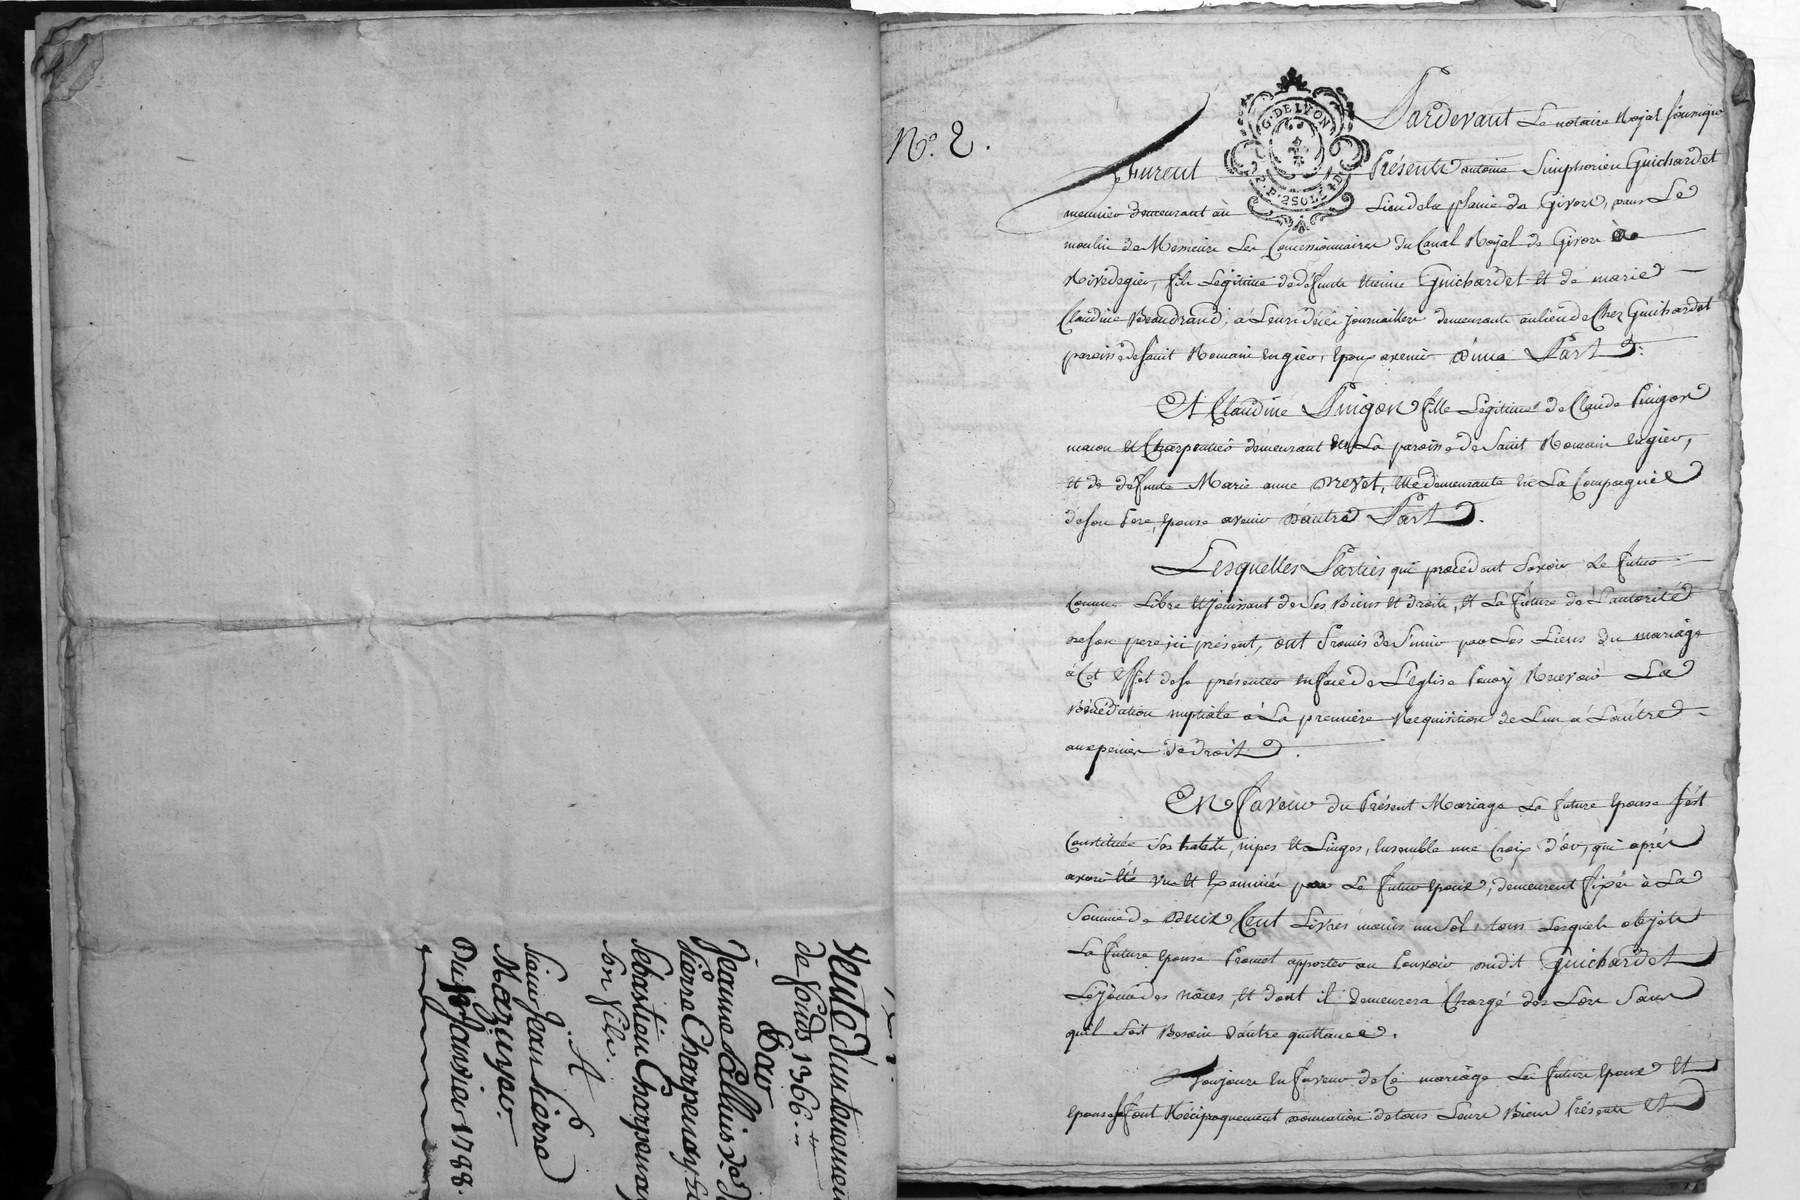 Vente d'un tenement
de fonds 1366.#
Par
Jeanne Pelluis de
Pierre Charpenay
Sebastien Charpenay
son fils.
A
Sieur Jean Pierre
Mazuyer.
Du Janvier 1788.
N.o 2.
G. DE LYON
Pardevant Le notaire Royal soussigné
furent Présents antoine Simphorien Guichardet
meunier demeurant au Lieu de la planie de Givors, dans Le
moulin de Messieurs Les Concessionnaires du Canal Royal de Givors à
Rivedegier, fils Légitime de défunts Etienne Guichardet et de marie
Claudine Beaudrand, à Leurs décès journailliers demeurants au lieu de Chez Guichardet
paroisse de saint Romain en gier, Epoux avenir d'une Part
Et Claudine Pingon fille Légitime de Claude Pingon
macon et Charpentier demeurant en La paroisse de Saint Romain en gier,
et de défunte Marie anne Drevet, Elle demeurante en La Compagnie
de son Pere, Epouse avenir d'autre Part.
Lesquelles Parties qui procèdent Savoir Le futur
Comme Libre et jouissant de Ses Biens et droits, et La future de L'autorité
de son pere ici présent, ont Promis de S'unir par Les Liens du mariage
à Cet Effet de se présenter en face de L'Eglise Pour y Recevoir La
Bénédiction nuptiale à La première Requisition de L'un à L'autre
aux peines de droit.
En faveur du Présent Mariage La future Epouse s'est
Constituée Ses habits, nipes et Linges, Ensemble une Croix d'or, qui après
avoir été vus et Examinés par Le futur Epoux, demeurent fixés à La
Somme de deux Cent Livres moins un Sol, tous Lesquels objets
La future Epouse Promet apporter au Pouvoir dudit Guichardet
Le jour des nôces, et dont il demeurera Chargé dès Lors Sans
qu'il soit Besoin d'autre quittance.
Toujours En faveur de Ce mariage Les futurs Epoux et
Epouse se font Réciproquement donnation de tous Leurs Biens Présents et